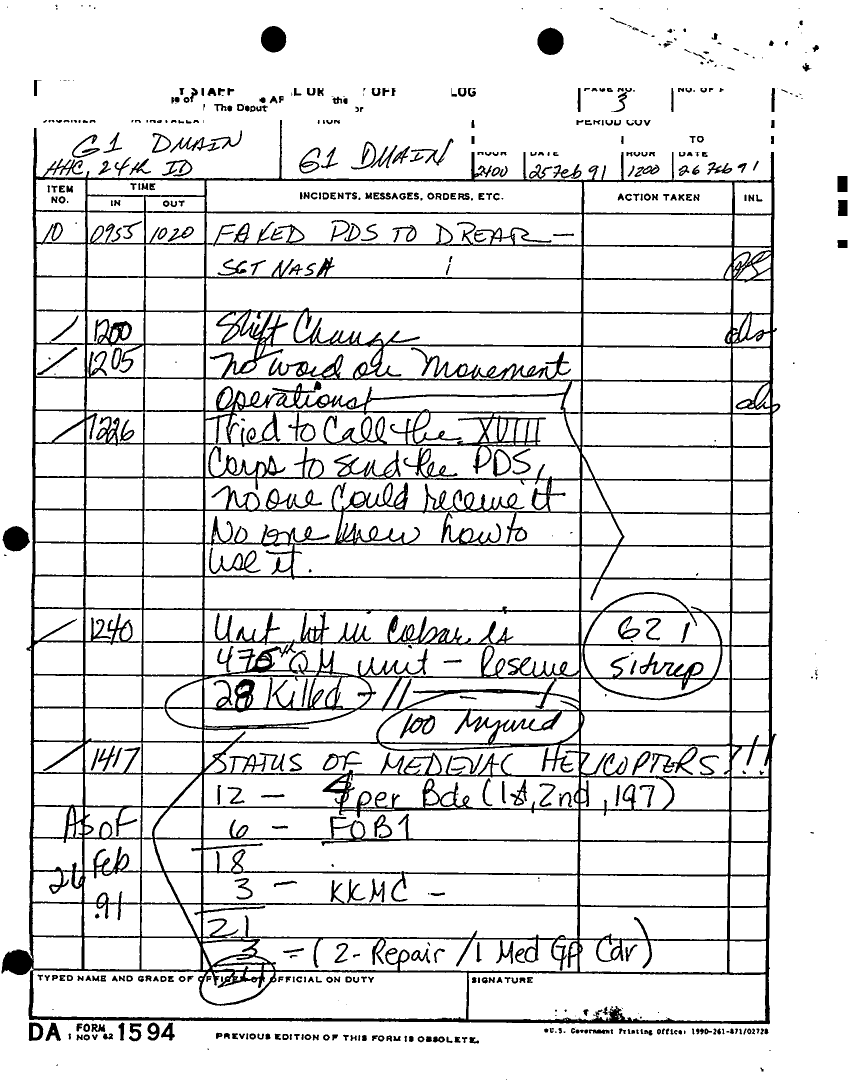 LOG
The Deput the or
PAGE NO.
3
PERIOD COV
TO
G1 DMAIN
HHC, 24th ID
G1 DMAIN
HOUR DATE HOUR DATE
2400 25 Feb 91 1200 26 Feb 91
ITEM NO. TIME INCIDENTS, MESSAGES, ORDERS, ETC. ACTION TAKEN INL
IN OUT
10 0955 1020 FAXED PDS TO DREAR —
SGT NASH
/ 1200 Shift Change
/ 1205 No word on Movement
Operations
/ 1226 Tried to Call the XVIII
Corps to send the PDS,
no one could receive it
No one knew how to
use it.
/ 1240 Unit hit in Cobar is
475th QM unit - Reserve
28 Killed - //
100 Injured
G2 1
Sitrep
/ 1417 STATUS OF MEDEVAC HELICOPTERS!!!
12 - 4 per Bde (1st, 2nd, 197)
As of
26 Feb
.91
6 - FOB1
18
3 - KKMC -
21
3 = (2- Repair / 1 Med Gp Cdr)
TYPED NAME AND GRADE OF OFFICER OR OFFICIAL ON DUTY
SIGNATURE
DA FORM 1594
1 NOV 62
PREVIOUS EDITION OF THIS FORM IS OBSOLETE.
*U.S. Government Printing Office: 1990-261-871/02728